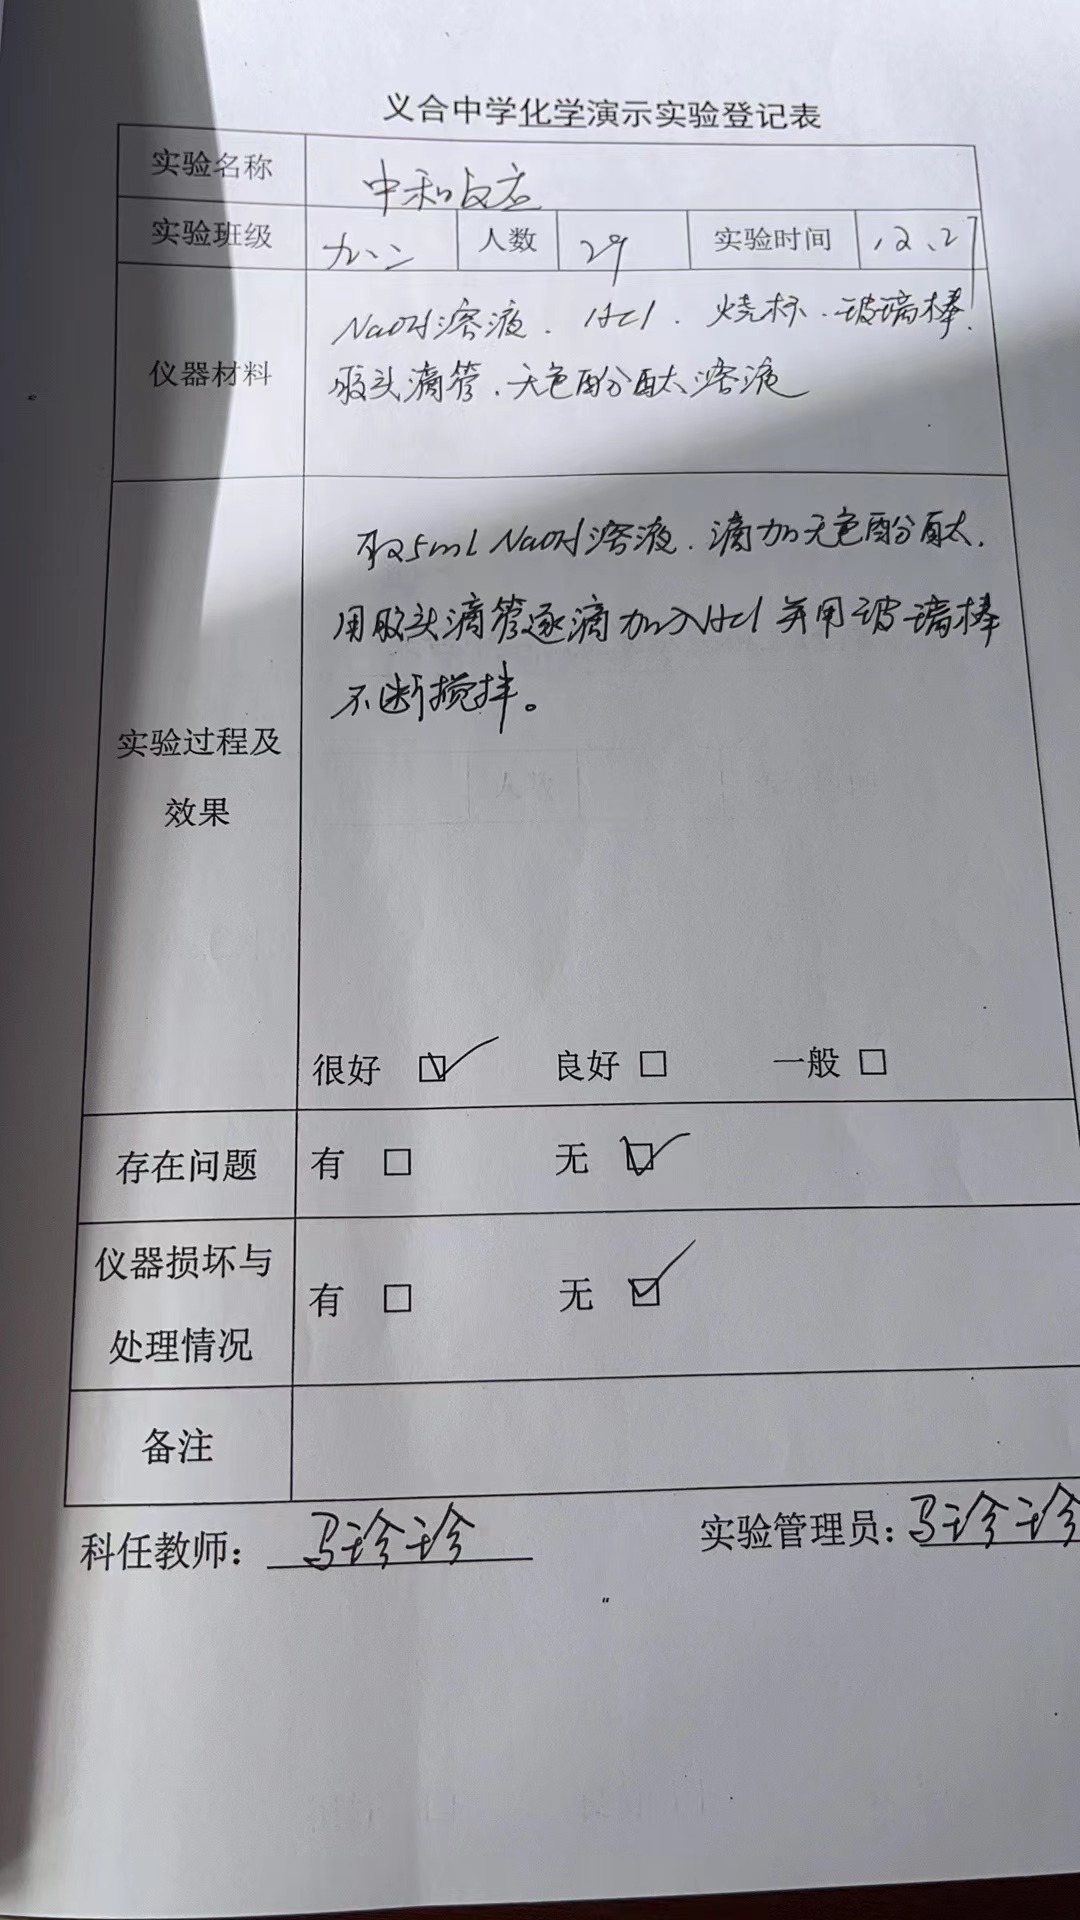 义合中学化学演示实验登记表
实验名称 中和反应
实验班级 九、二 人数 29 实验时间 12、27
仪器材料
NaOH溶液、HCl、烧杯、玻璃棒、
胶头滴管、无色酚酞溶液
实验过程及
效果
取5ml NaOH溶液、滴加无色酚酞、
用胶头滴管逐滴加入HCl并用玻璃棒
不断搅拌。
很好 ☑ 良好 □ 一般 □
存在问题 有 □ 无 ☑
仪器损坏与
处理情况
有 □ 无 ☑
备注
科任教师: 马珍珍 实验管理员: 马珍珍